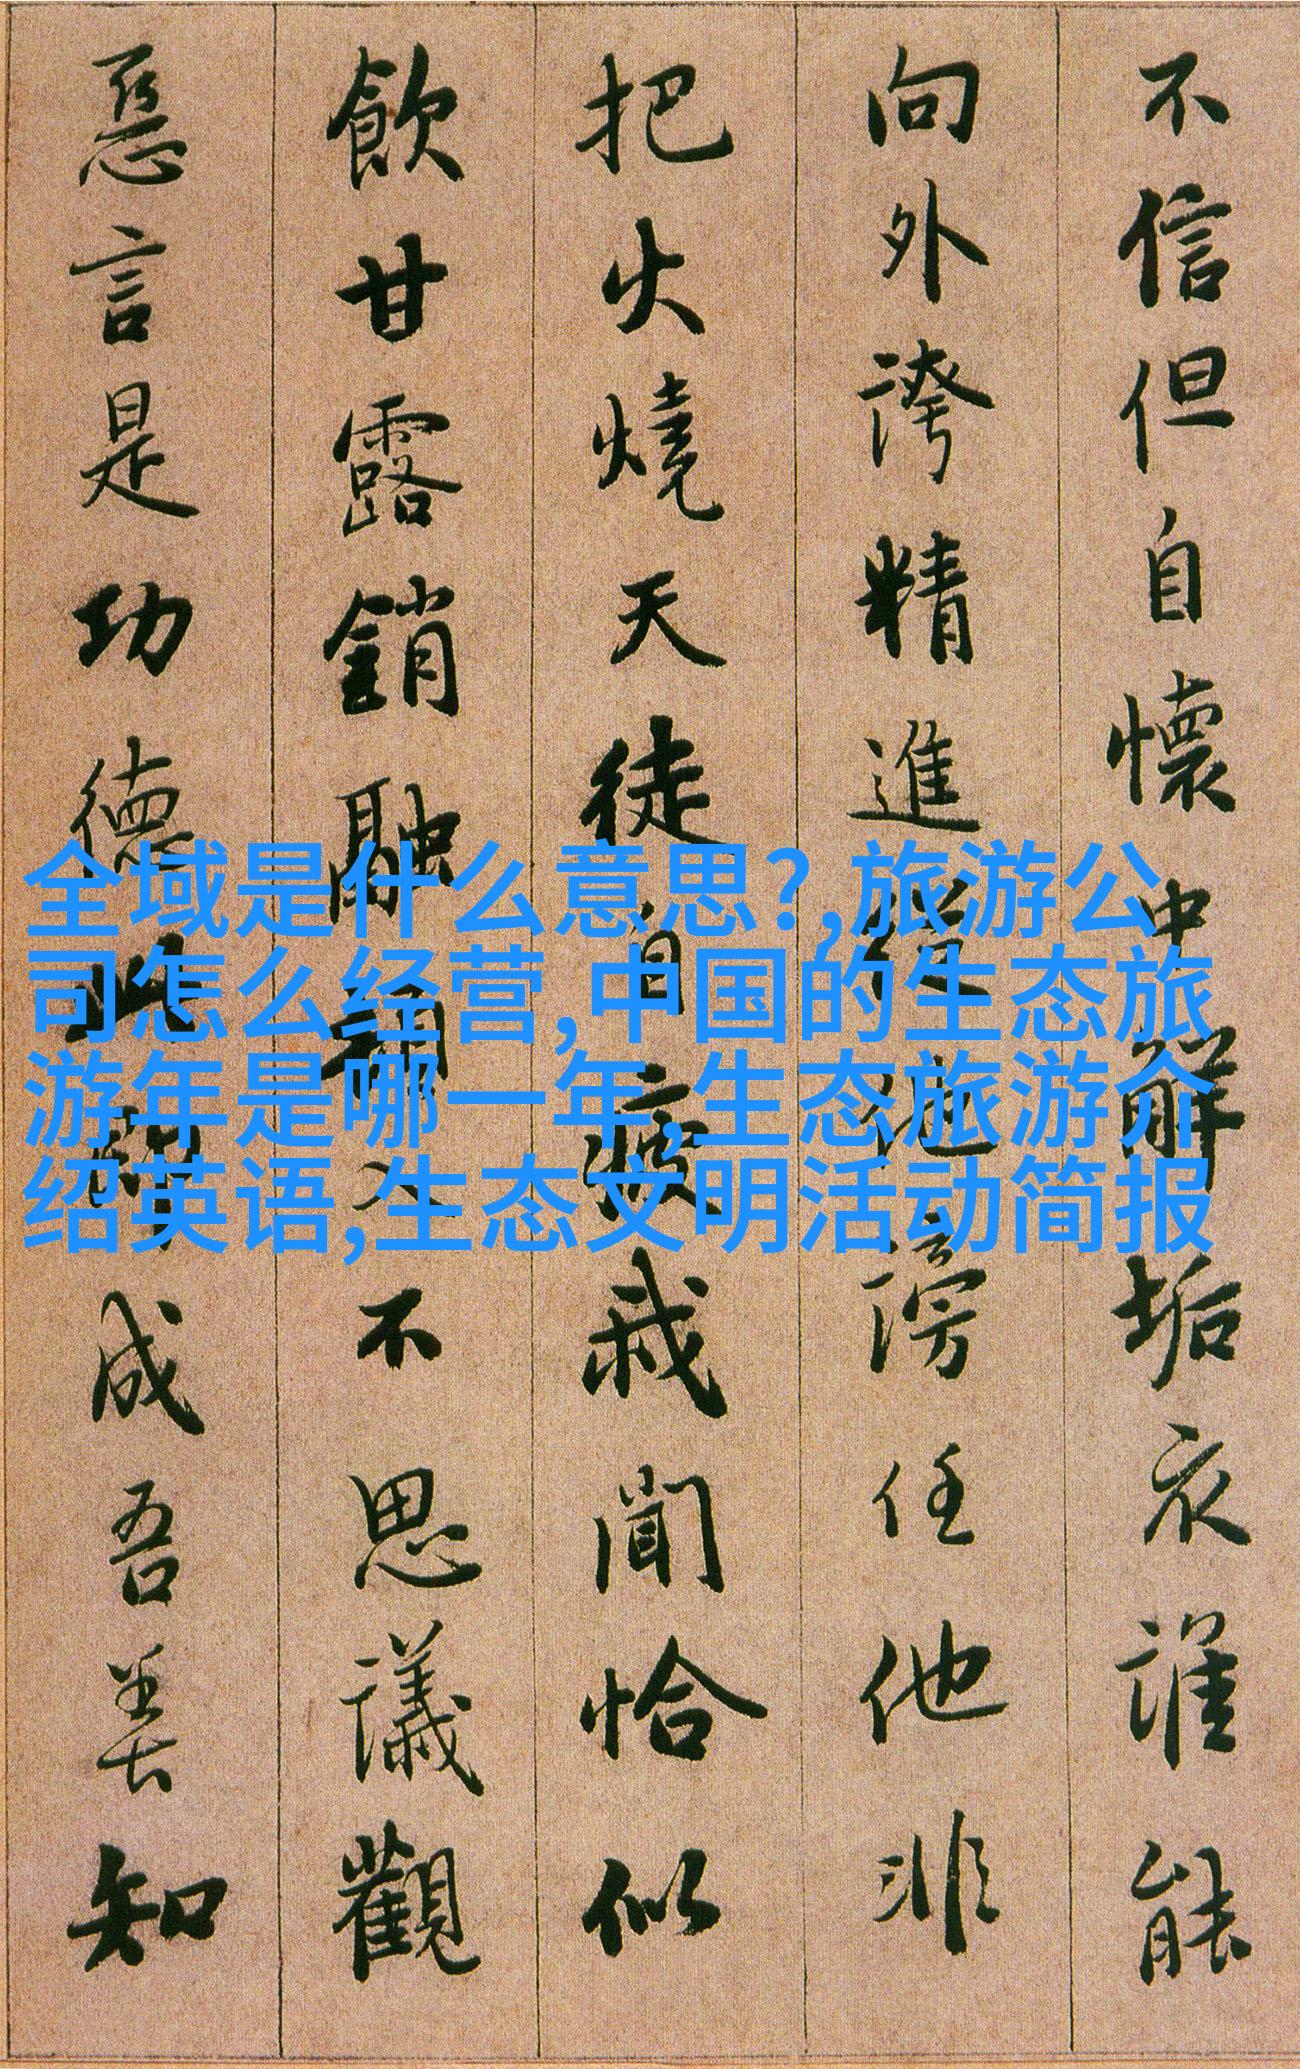 不信但自懷中解垢衣誰能
向外誇精進從他謗任他非
把火燒天徒自疲我聞恰似
飲甘露銷融頓入不思議觀
惡言是功德此成吾善知
全域是什么意思?,旅游公
司怎么经营,中国的生态旅
游年是哪一年,生态旅游介
绍英语,生态文明活动简报